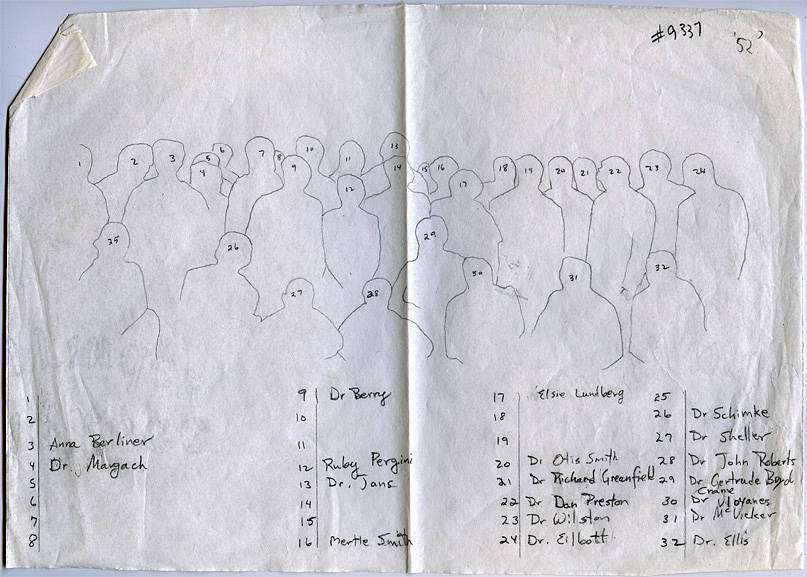 #9337
'52'
1 2 3 4 5 6 7 8 9 10 11 12 13 14 15 16 17 18 19 20 21 22 23 24
25 26 27 28 29 30 31 32
1
2
3 Anna Berliner
4 Dr. Margach
5
6
7
8
9 Dr Berry
10
11
12 Ruby Pergini
13 Dr. Jans
14
15
16 Mertle Smith
17 Elsie Lundberg
18
19
20 Dr Otis Smith
21 Dr Richard Greenfield
22 Dr Dan Preston
23 Dr Wilston
24 Dr. Eilbott
25
26 Dr Schimke
27 Dr Sheller
28 Dr John Roberts
29 Dr Gertrude Byrd
Crane
30 Dr Uloyanes
31 Dr McVicker
32 Dr. Ellis